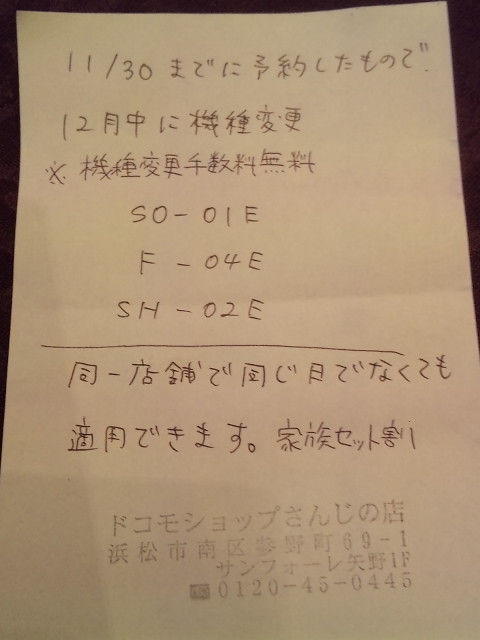 11/30までに予約したもので
12月中に機種変更
※機種変更手数料無料
SO-01E
F-04E
SH-02E
同一店舗で同じ月でなくても
適用できます。家族セット割り
ドコモショップさんじの店
浜松市南区参野町69-1
サンフォーレ矢野1F
☎0120-45-0445